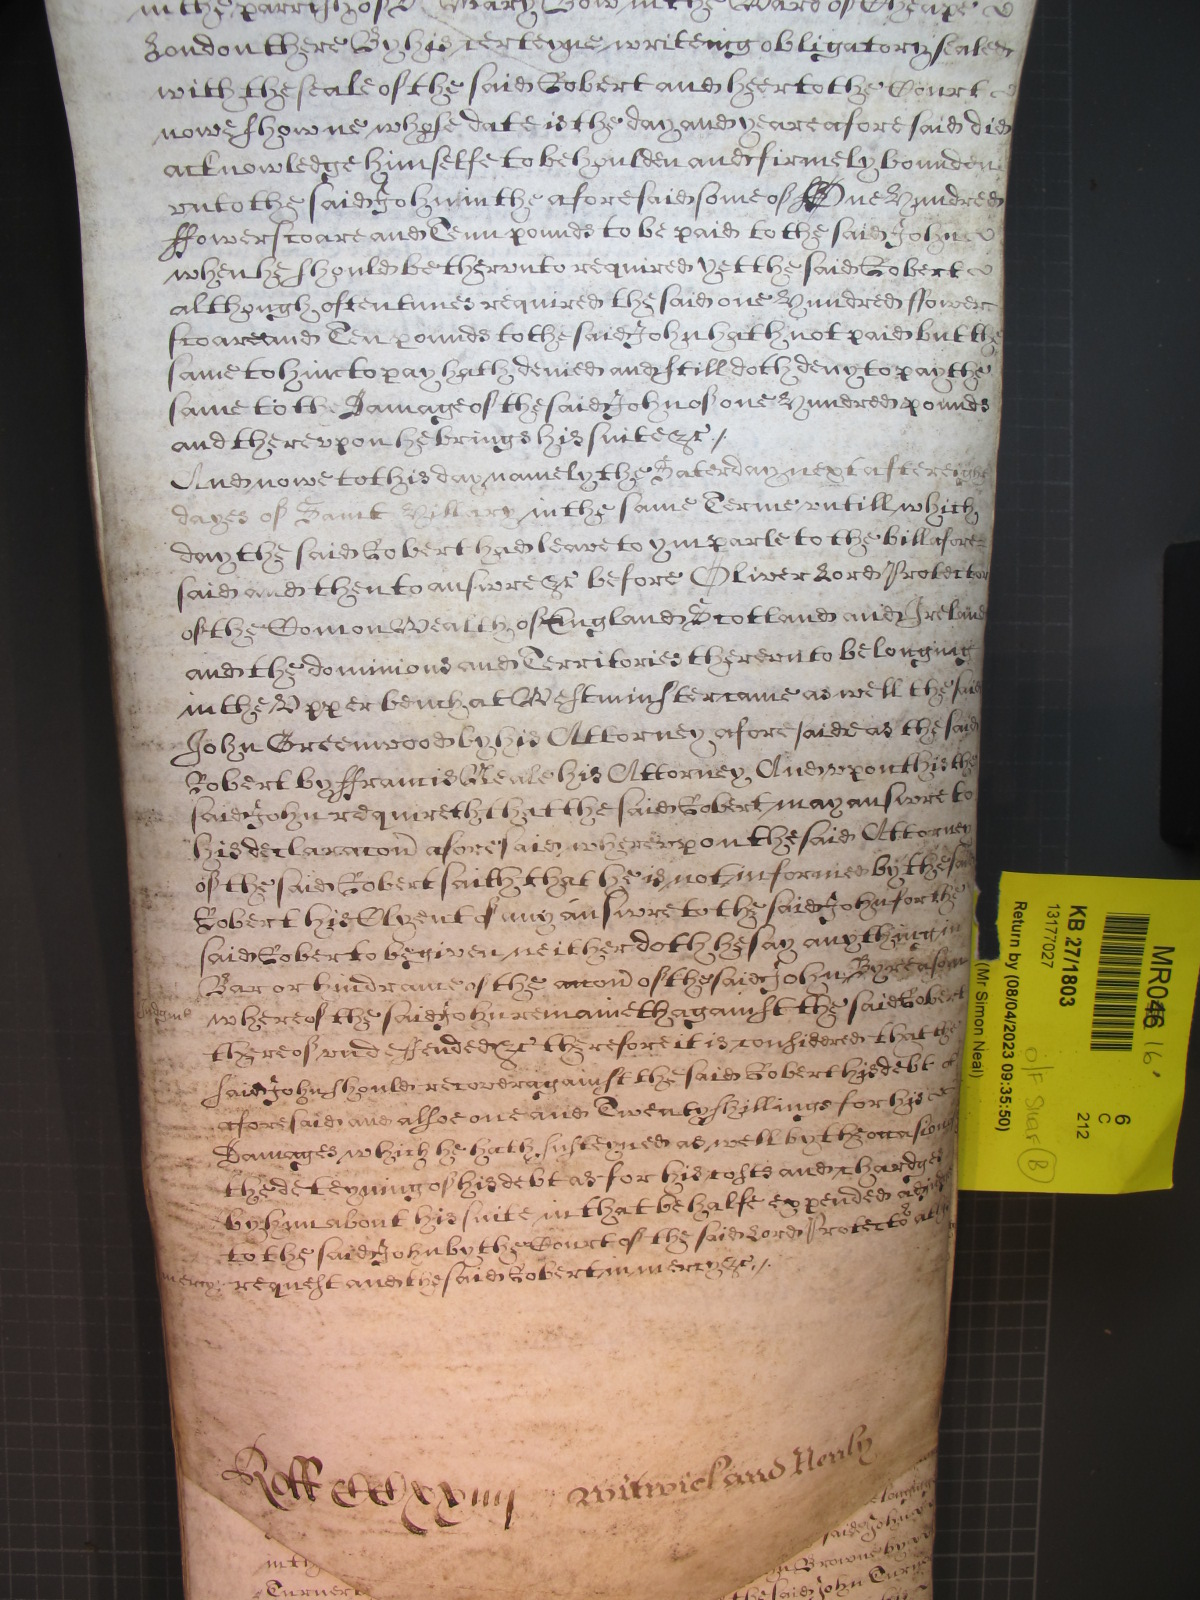 in the parrish of St Mary Bow in the Ward of Cheape
London there By his certeyne writeing obligatory sealed
with the seale of the said Robert and heer to the Court
nowe showne whose date is the day and yeare aforesaid did
acknowledge himselfe to be houlden and firmely bounden
vnto the said John in the aforesaid some of One Hundred
ffowerscoare and Tenn pounds to be paid to the said John
when he should be thervnto required yet the said Robert
although oftentimes required the said one Hundred ffower
scoare and Ten pounds to the said John hath not paid but the
same to him to pay hath denied and still doth deny to pay the
same to the Damage of the said John of one Hundred pounds
and therevpon he brings his suite &c ./.
And nowe to this day namely the Saterday next after eight
dayes of Saint Hillary in the same Terme vntill which
day the said Robert had leave to ymparle to the bill afore=
said and then to answre &c before Oliver Lord Protector
of the Comon Wealth of England Scotland and Ireland
and the dominions and Territories therevnto belonging
in the Vpper bench at Westminster came as well the said
John Greenwood by his Attorney aforesaide as the said
Robert by ffrancis Neale his Attorney And vpon this the
said John requireth that the said Robert may answre to
his declaracon aforesaid wherevpon the said Attorney
of the said Robert saith that he is not informed by the said
Robert his Clyent of any answre to the said John for the
said Robert to be given neither doth he say anything in
Bar or hindrance of the accon of the said John By reason
Judgmt whereof the said John remaineth against the said Robert
thereof vndeffended &c therefore it is considered that the
said John should recover against the said Robert his debt
aforesaid and alsoe one and Twenty shillings for his
Damages which he hath susteyned as well by the occasion of
the deteyning of his debt as for his costs and chardges
by him about his suite in that behalfe expended
to the said John by the Court of the said Lord Protector at his
mercy request and the said Robert in mercy &c ./.
Roff CCCxxiiij Witwick and Henly
belonging
said John
Browne by
in the
the said John Turner
Turner
MR046 16'
KB 27/1803
13177027
Return by (08/04/2023 09:35:50)
(Mr Simon Neal)
6
C
212
O/F B